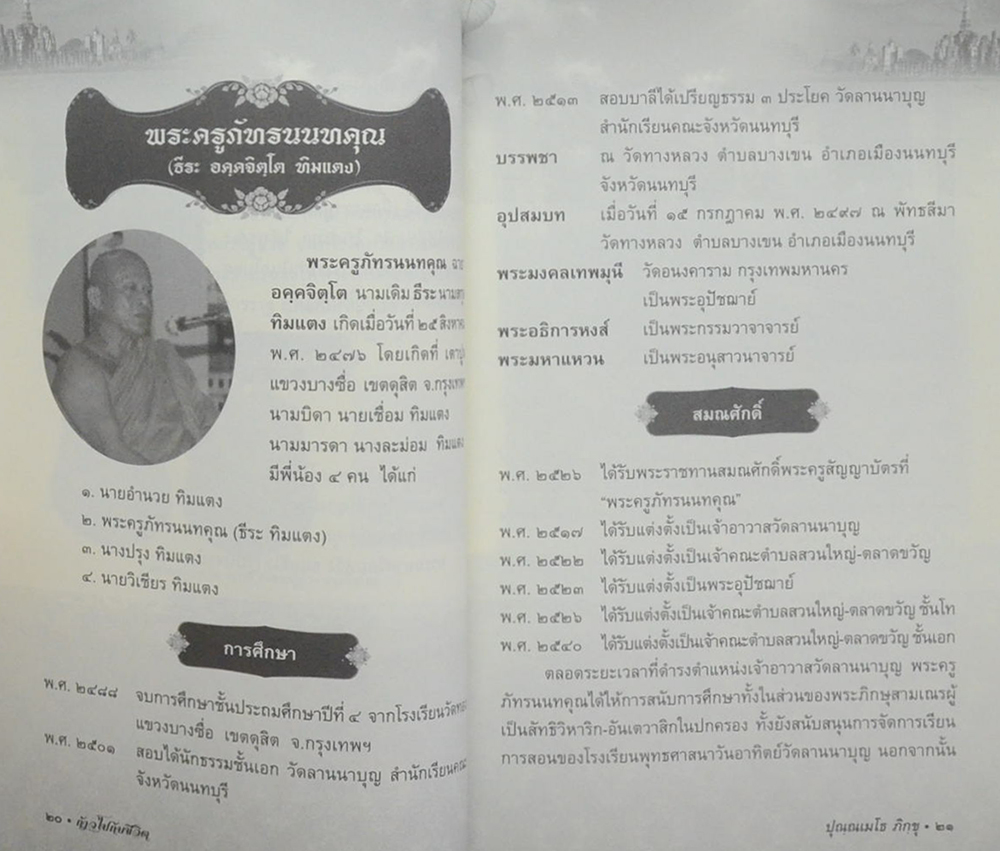 พระครูภัทรนนทคุณ
(ธีระ อคฺคจิตฺโต ทิมแตง)
พระครูภัทรนนทคุณ
อคฺคจิตฺโต นามเดิม ธีระ
ทิมแตง เกิดเมื่อวันที่ ๒๕
พ.ศ. ๒๔๗๖ โดยเกิดที่
แขวงบางซื่อ เขตดุสิต จ.กรุงเทพฯ
นามบิดา นายเชื่อม ทิมแตง
นามมารดา นางละม่อม ทิมแตง
มีพี่น้อง ๔ คน ได้แก่
๑. นายอำนวย ทิมแตง
๒. พระครูภัทรนนทคุณ (ธีระ ทิมแตง)
๓. นางปรุง ทิมแตง
๔. นายวิเชียร ทิมแตง
การศึกษา
พ.ศ. ๒๔๘๘ จบการศึกษาชั้นประถมศึกษาปีที่ ๔ จากโรงเรียน
แขวงบางซื่อ เขตดุสิต จ.กรุงเทพฯ
พ.ศ. ๒๕๐๑ สอบได้นักธรรมชั้นเอก วัดลานนาบุญ สำนักเรียน
จังหวัดนนทบุรี
๒๐ • ก้าวไปกับชีวิต
พ.ศ. ๒๕๑๓ สอบบาลีได้เปรียญธรรม ๓ ประโยค วัดลานนาบุญ
สำนักเรียนคณะจังหวัดนนทบุรี
บรรพชา ณ วัดทางหลวง ตำบลบางเขน อำเภอเมืองนนทบุรี
จังหวัดนนทบุรี
อุปสมบท เมื่อวันที่ ๑๕ กรกฎาคม พ.ศ. ๒๔๙๗ ณ พัทธสีมา
วัดทางหลวง ตำบลบางเขน อำเภอเมืองนนทบุรี
พระมงคลเทพมุนี วัดอนงคาราม กรุงเทพมหานคร
เป็นพระอุปัชฌาย์
พระอธิการหงส์ เป็นพระกรรมวาจาจารย์
พระมหาแหวน เป็นพระอนุสาวนาจารย์
สมณศักดิ์
พ.ศ. ๒๕๒๖ ได้รับพระราชทานสมณศักดิ์พระครูสัญญาบัตรที่
“พระครูภัทรนนทคุณ”
พ.ศ. ๒๕๑๗ ได้รับแต่งตั้งเป็นเจ้าอาวาสวัดลานนาบุญ
พ.ศ. ๒๕๒๒ ได้รับแต่งตั้งเป็นเจ้าคณะตำบลสวนใหญ่-ตลาดขวัญ
พ.ศ. ๒๕๒๓ ได้รับแต่งตั้งเป็นพระอุปัชฌาย์
พ.ศ. ๒๕๒๖ ได้รับแต่งตั้งเป็นเจ้าคณะตำบลสวนใหญ่-ตลาดขวัญ ชั้นโท
พ.ศ. ๒๕๔๐ ได้รับแต่งตั้งเป็นเจ้าคณะตำบลสวนใหญ่-ตลาดขวัญ ชั้นเอก
ตลอดระยะเวลาที่ดำรงตำแหน่งเจ้าอาวาสวัดลานนาบุญ พระครู
ภัทรนนทคุณได้ให้การสนับการศึกษาทั้งในส่วนของพระภิกษุสามเณรผู้
เป็นสัทธิวิหาริก-อันเตวาสิกในปกครอง ทั้งยังสนับสนุนการจัดการเรียน
การสอนของโรงเรียนพุทธศาสนาวันอาทิตย์วัดลานนาบุญ นอกจากนั้น
ปุณฺณเมโธ ภิกขุ • ๒๑